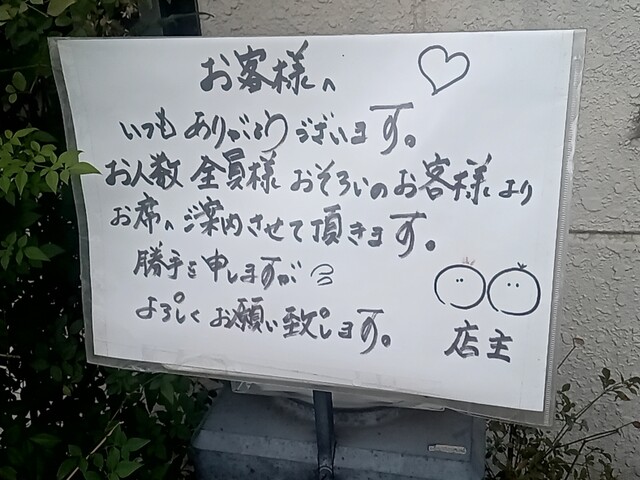 お客様へ
いつもありがとうございます。
お人数全員様おそろいのお客様より
お席へご案内させて頂きます。
勝手を申しますが
よろしくお願い致します。
店主